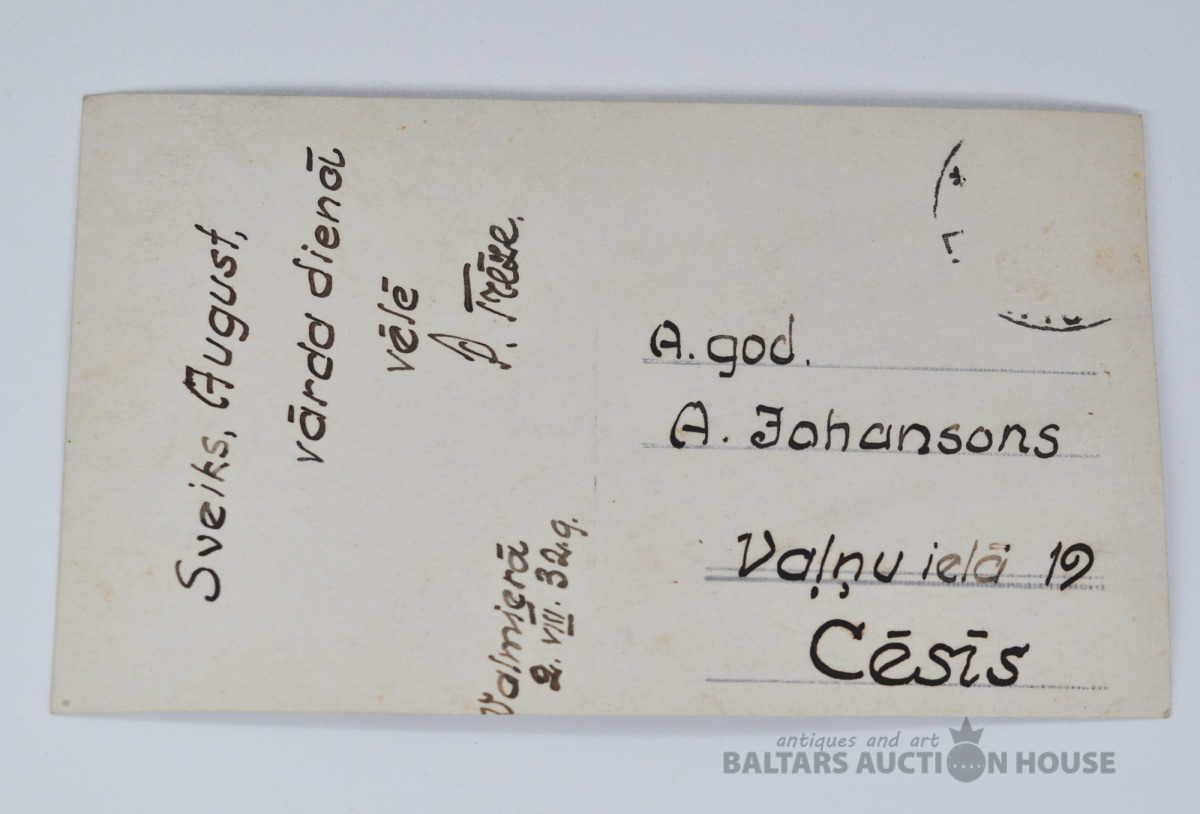 Sveiks, August,
vārda dienā
vēlē
Valmierā
2. VIII. 32.g.
A. god.
A. Johansons
Vaļņu ielā 19
Cēsīs
antiques and art
BALTARS AUCTION HOUSE